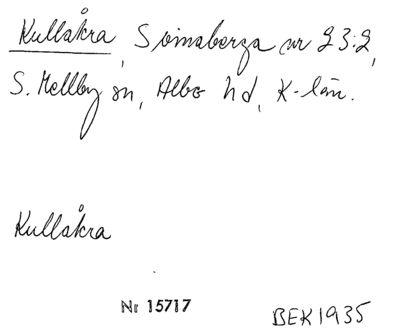 Kullåkra, Svinaberga nr 23:2,
S. Mellby sn, Albo hd, K-län.
Kullåkra
Nr 15717
BEK1935